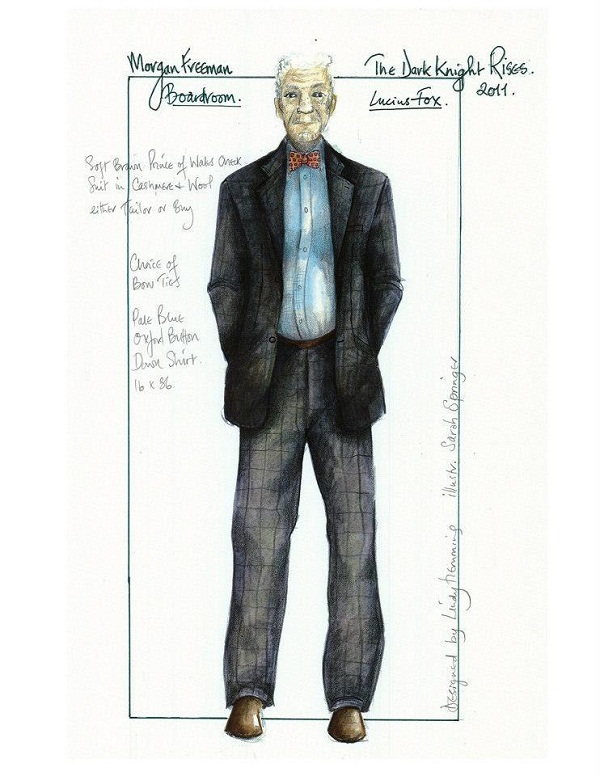 Morgan Freeman
Boardroom.
The Dark Knight Rises.
2011.
Lucius Fox.
Soft Brown Prince of Wales Check
Suit in Cashmere + Wool
either Tailor or Buy
Choice of
Bow Ties
Pale Blue
Oxford Button
Down Shirt.
16 x 36.
Designed by Lindy Hemming illustr. Sarah Springer